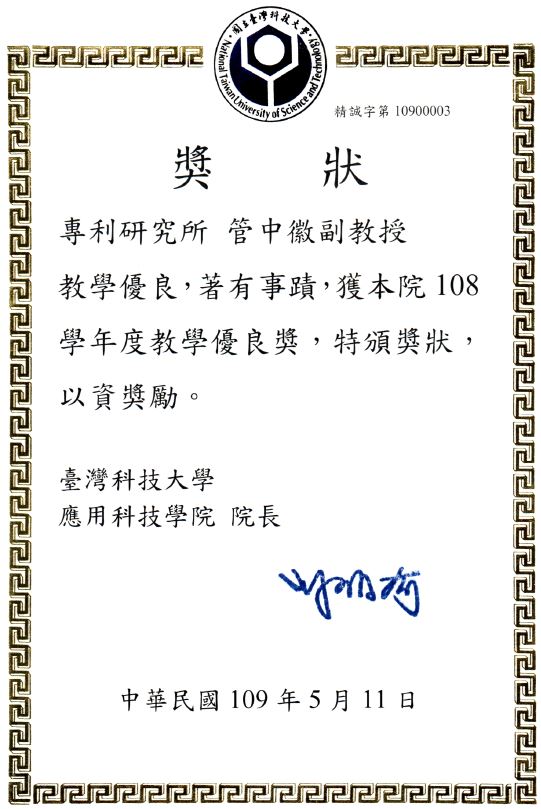 國立臺灣科技大學
National Taiwan University of Science and Technology
精誠字第 10900003
獎 狀
專利研究所 管中徽副教授
教學優良，著有事蹟，獲本院 108
學年度教學優良獎，特頒獎狀，
以資獎勵。
臺灣科技大學
應用科技學院 院長
中華民國 109 年 5 月 11 日